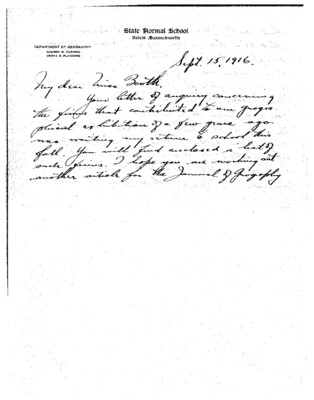 State Normal School
Salem Massachusetts
DEPARTMENT OF GEOGRAPHY
Sept. 15, 1916.
My dear Miss Booth,
Your letter of enquiry concerning
the firms that contributed to our geogra-
phical exhibition of a few years ago
was waiting my return to school this
fall. You will find enclosed a list of
such firms. I hope you are working out
another article for the Journal of Geography